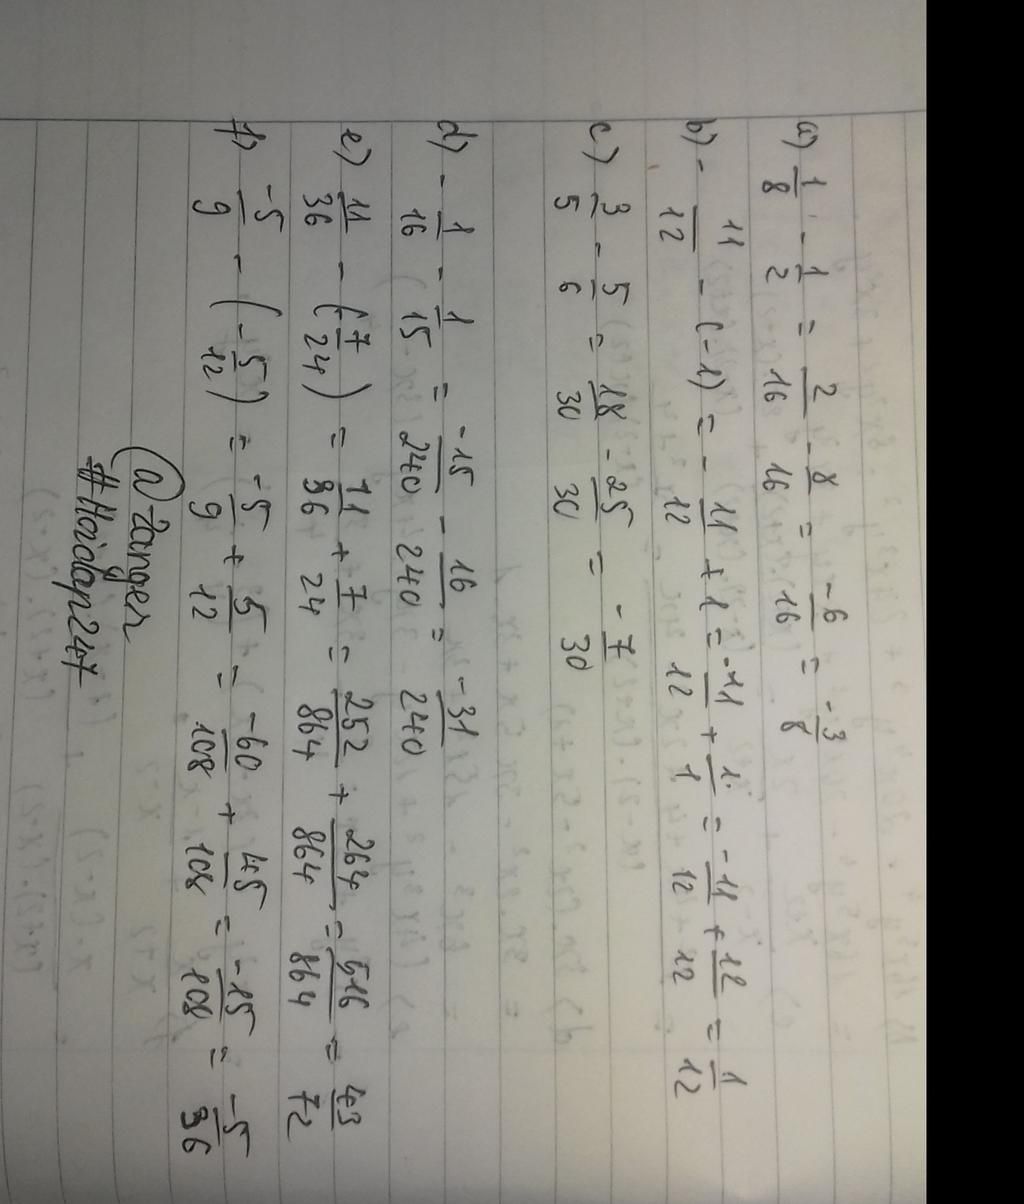 a) 1/8 - 1/2 = 2/16 - 8/16 = -6/16 = -3/8
b) - 11/12 - (-1) = - 11/12 + 1 = -11/12 + 1/1 = -11/12 + 12/12 = 1/12
c) 3/5 - 5/6 = 18/30 - 25/30 = - 7/30
d) - 1/16 - 1/15 = -15/240 - 16/240 = -31/240
e) 11/36 - (-7/24) = 11/36 + 7/24 = 252/864 + 264/864 = 516/864 = 43/72
f) -5/9 - (-5/12) = -5/9 + 5/12 = -60/108 + 45/108 = -15/108 = -5/36
@ zanger
#Hoidap247